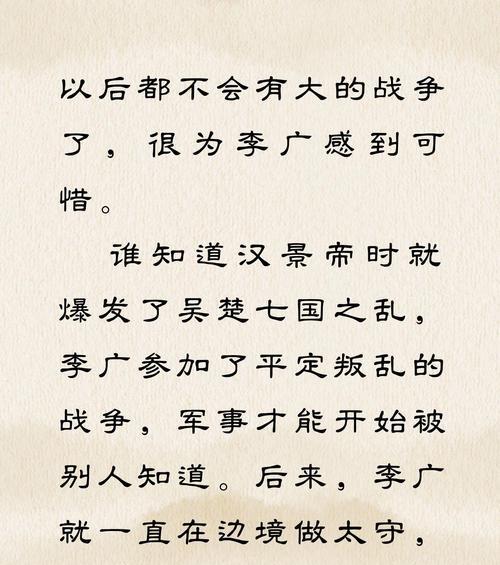 以后都不会有大的战争
了，很为李广感到可
惜。
谁知道汉景帝时就
爆发了吴楚七国之乱，
李广参加了平定叛乱的
战争，军事才能开始被
别人知道。后来，李广
就一直在边境做太守，